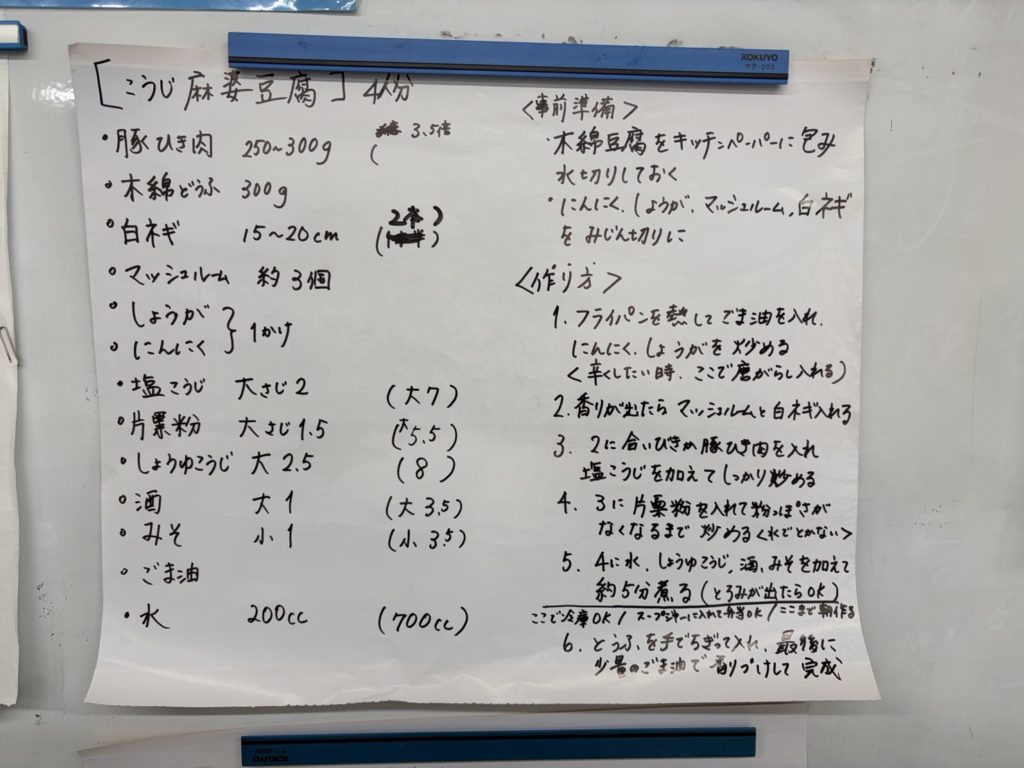 KOKUYO
マク-203
[こうじ麻婆豆腐] 4人分
・豚ひき肉 250~300g ( 3.5倍
・木綿どうふ 300g
・白ネギ 15~20cm (2本)
・マッシュルーム 約3個
・しょうが
・にんにく } 1かけ
・塩こうじ 大さじ2 (大7)
・片栗粉 大さじ1.5 (大5.5)
・しょうゆこうじ 大2.5 (8)
・酒 大1 (大3.5)
・みそ 小1 (小3.5)
・ごま油
・水 200cc (700cc)
<事前準備>
・木綿豆腐をキッチンペーパーに包み
水切りしておく
・にんにく、しょうが、マッシュルーム、白ネギ
をみじん切りに
<作り方>
1. フライパンを熱してごま油を入れ、
にんにく、しょうがを炒める
<辛くしたい時、ここで唐がらし入れる)
2. 香りが出たらマッシュルームと白ネギ入れる
3. 2に合いびきか豚ひき肉を入れ
塩こうじを加えてしっかり炒める
4. 3に片栗粉を入れて粉っぽさが
なくなるまで炒める<水でとかない>
5. 4に水、しょうゆこうじ、酒、みそを加えて
約5分煮る(とろみが出たらOK)
ここで冷凍OK / スープジャーに入れて弁当OK / ここまで朝作る
6. とうふを手でちぎって入れ、最後に
少量のごま油で香りづけして完成
KOKUYO